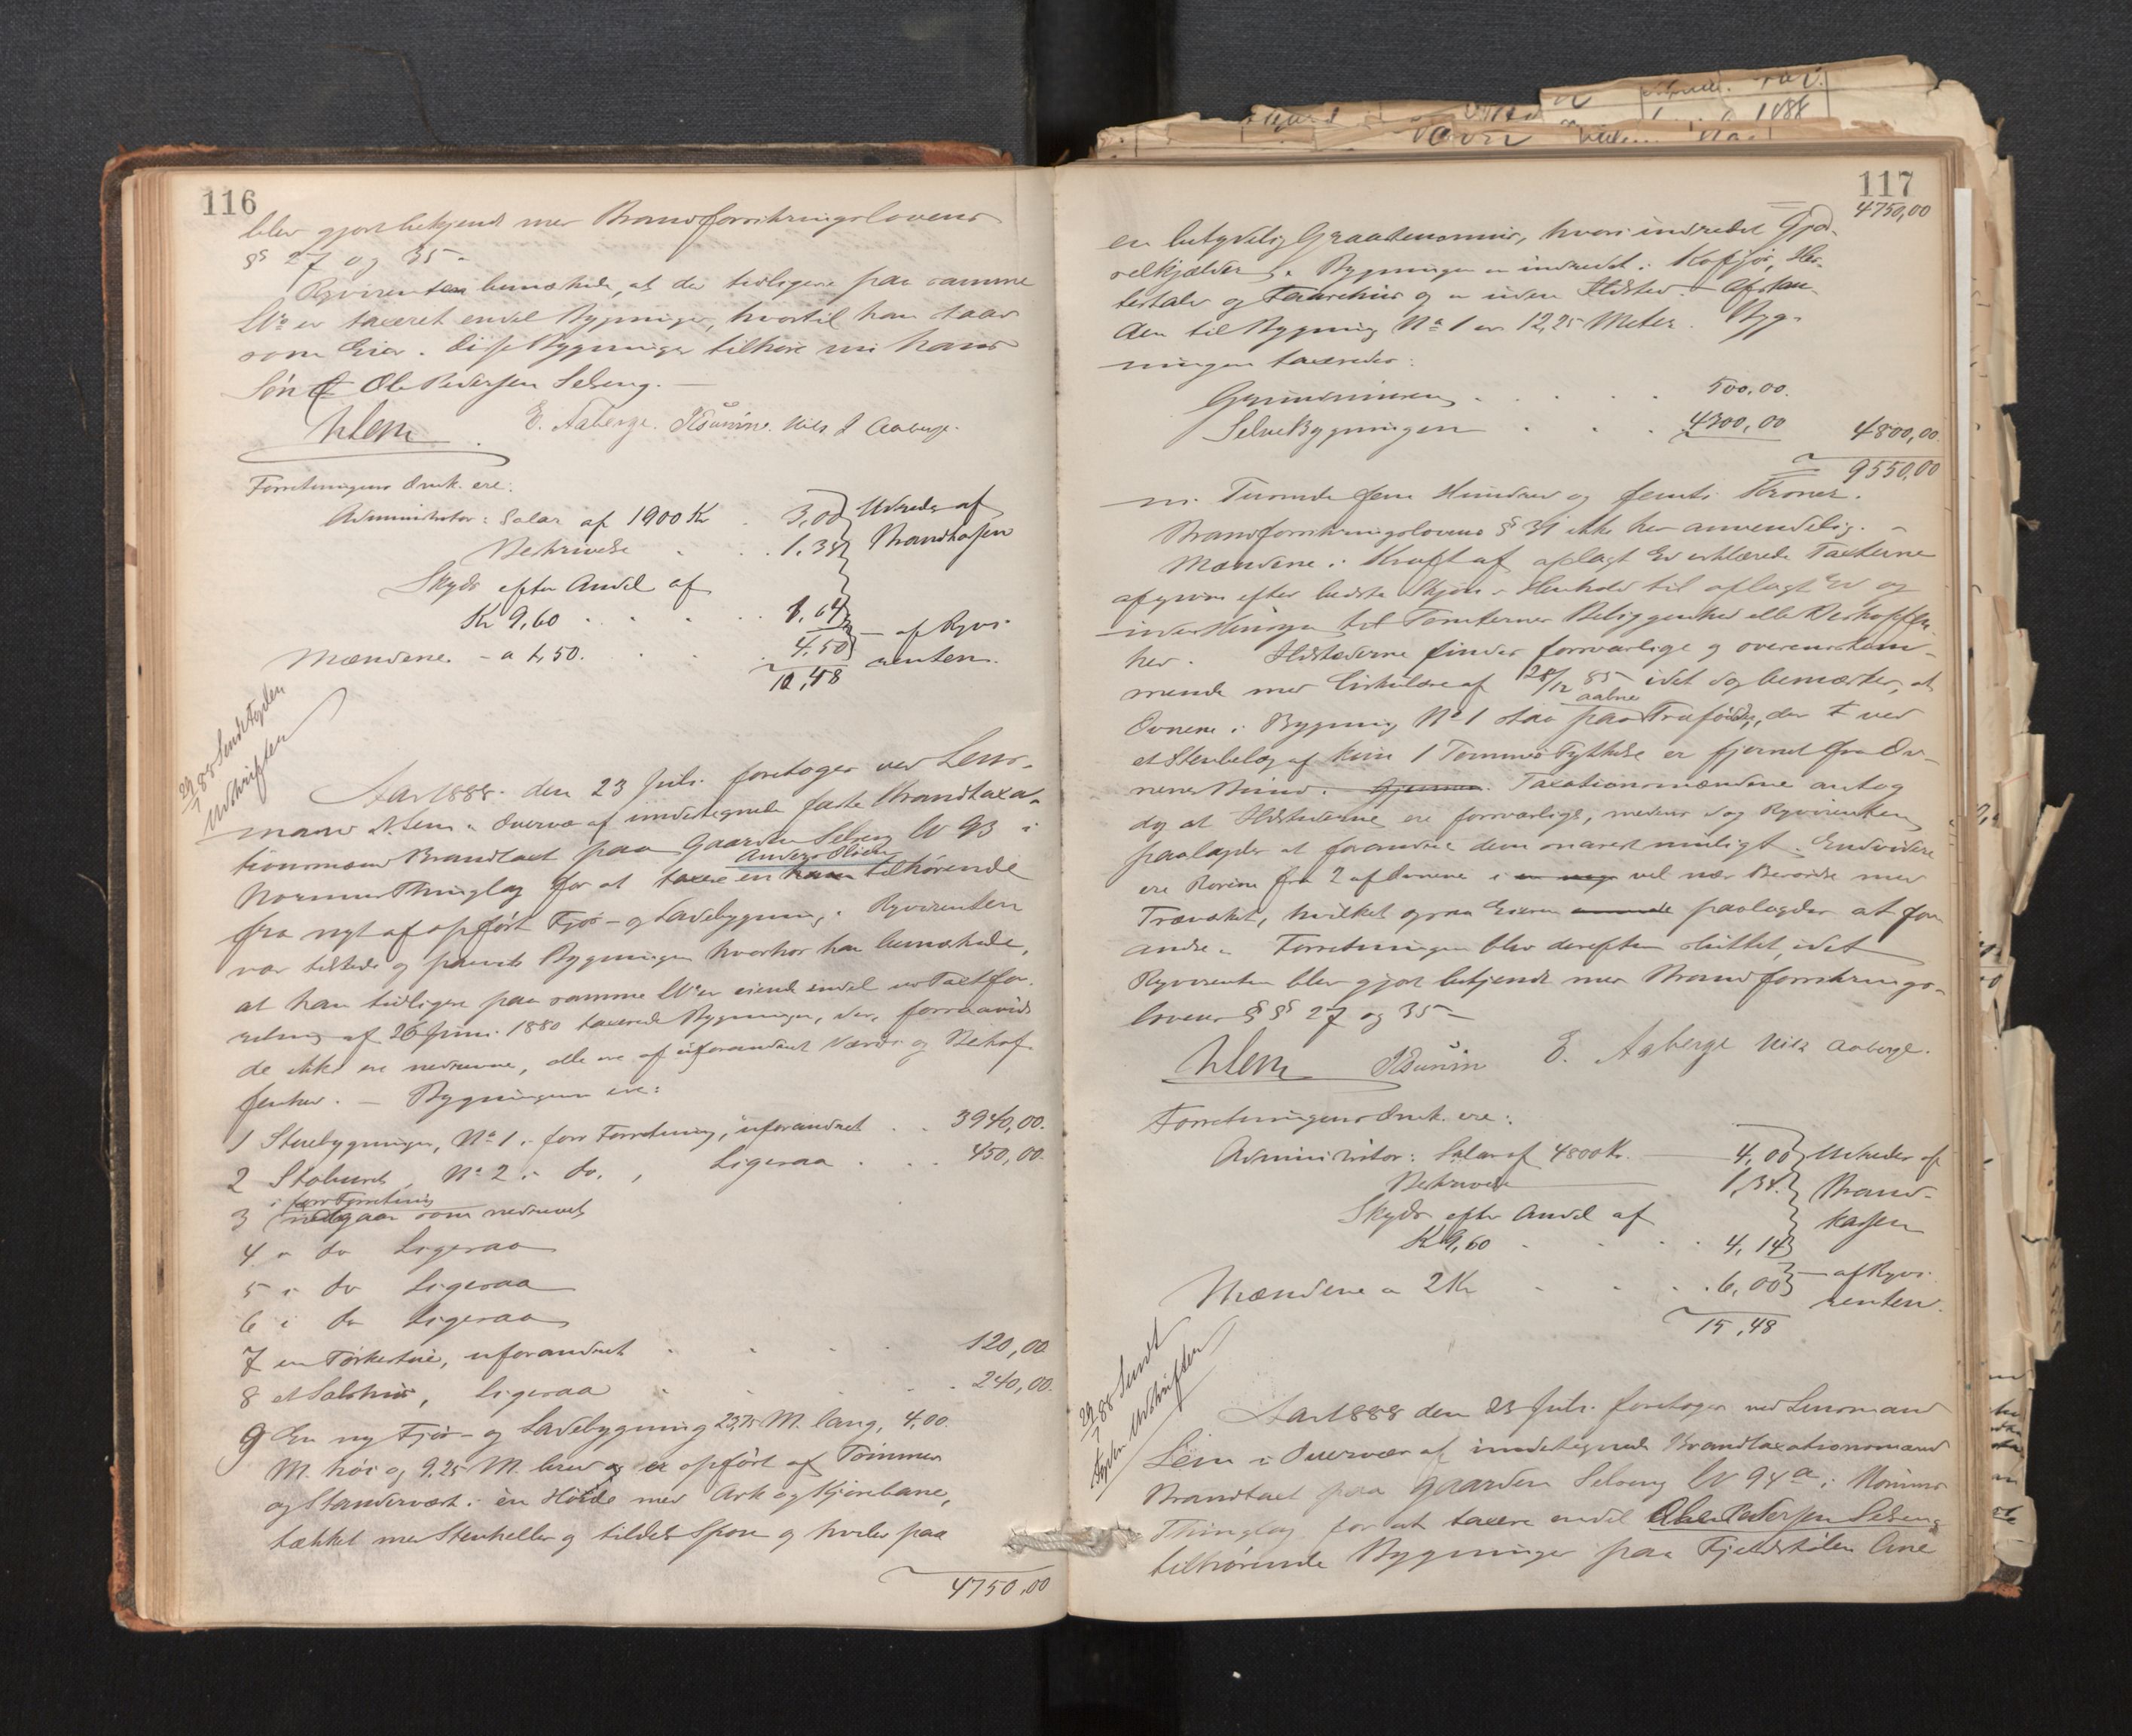 116
blev gjort bekjendt med Brandforsikringslovens
§§ 27 og 35 -
Rqvirenten bemærkede, at der tidligere paa samme
No er taxeret endel Bygninger, hvortil han staar
som Eier. Disse Bygninger tilhøre nu hans
Søn Ole Pedersen Selseng. -
NLem. E. Aaberge. Nils J Aaberge.
Forretningens Omk. ere:
Administrator: Salær af 1900 Kr . 3,00 Udredes af
Beskrivelse . . 1.34 Brandkassen
Skyds efter Andel af
Kr 9,60 . . . . 1,64
Mændene - a 1,50. . . 4.50 - af Rqvi-
renten.
10,48
29/7 88 Sendt Fogden
Udskriften
Aar 1888 den 23 Juli foretoges ved Lens-
mand N. Lem i Overvær af undertegnede faste Brandtaxa-
tionsmænd Brandtaxt paa Gaarden Selseng No 93 i
Anders Olsen
Norums Thinglag for at taxere en ham tilhørende
fra nyt af opført Fjøs- og Ladebygning. Rqvirenten
var tilstede og paaviste Bygningen hvorhos han bemærkede,
at han tidligere paa samme No er eiende endel ved Taxtfor-
retning af 26 Juni 1880 taxerede Bygninger, der, forsaavidt
de ikke ere nedrevne, alle ere af uforandret Værdi og Beskaf-
fenhed. - Bygningerne ere:
1 Stuebygningen, No 1 i forr Forretning, uforandret . . 3940,00.
2 Stabured, No 2 i do. , Ligesaa . . . 450,00.
i forr Forretning
3 udgaar som nedrevet
4 i do Ligesaa
5 i do Ligesaa
6 i do Ligesaa
7 en Tørkestue, uforandret . . . . 120,00
8 et Saltehus, ligesaa . . . . 240,00.
9 En ny Fjøs- og Ladebygning 23,75 M. lang, 4,00.
M. høi og 9,25 M. bred og er opført af Tømmer
og Standerværk i en Høide med Ark og Kjørebane,
tækket med Stenheller og tildels Spon og hviler paa
4750,00
117
4750,00
en betydelig Graastensmur, hvori indredet Gjød-
selkjælder. Bygningen er indredet i Kofjøs, He-
stestald og Faarehus og er uden Ildsted. - Afstan-
den til Bygning No 1 er 12,25 Meter. Byg-
ningen taxeredes:
Grundmuren . . . . 500,00.
Selve Bygningen . . . 4300,00 4800,00.
9550,00
ni Tusinde fem Hundred og femti Kroner.
Brandforsikringslovens § 31 ikke her anvendelig. -
Mændene i Kraft af aflagt Ed erklærede Taxterne
afgivne efter bedste Skjøn i Henhold til aflagt Ed og
uden Hensyn til Tomternes Beliggenhed eller Beskaffen-
hed. Ildstederne findes forsvarlige og overensstem-
mende med Cirkulære af 28/12 85 idet dog bemærkes, at
aabne
Ovnene i Bygning No 1 staa paa Træfødder, der ved
et Stenbelæg af kun 1 Tommes Tykkelse er fjernet fra Ov-
nens Bund. Taxationsmændene antog
dog at Ildstederne ere forsvarlige, medens dog Rqvirenten
paalagdes at forandre dem snarest muligt. Endvidere
ere Rørene fra 2 af Ovnene i vel nær Berørelse med
Træværket, hvilket ogsaa Eieren paalagdes at for-
andre. Forretningen blev derefter sluttet, idet
Rqvirenten blev gjort bekjendt med Brandforsikrings-
lovens §§ 27 og 35 -
NLem E. Aaberge Nils Aaberge.
Forretningens Omk. ere:
Administrator: Salær af 4800 Kr. 4,00 Udredes af
Beskrivelse 1,34. Brand-
Skyds efter Andel af kassen
Kr 9,60 . . . 4,14
Mændene a 2 Kr . . . 6,00 - af Rqvi-
renten.
15,48
29/7 88 Sendt
Fogden Udskriften
Aar 1888 den 23 Juli foretoges ved Lensmand
Lem i Overvær af undertegnede Brandtaxationsmænd
Brandtaxt paa Gaarden Selseng No 94a i Norums
Thinglag for at taxere endel Ole Pedersen Selseng
tilhørende Bygninger paa Fjeldstølen